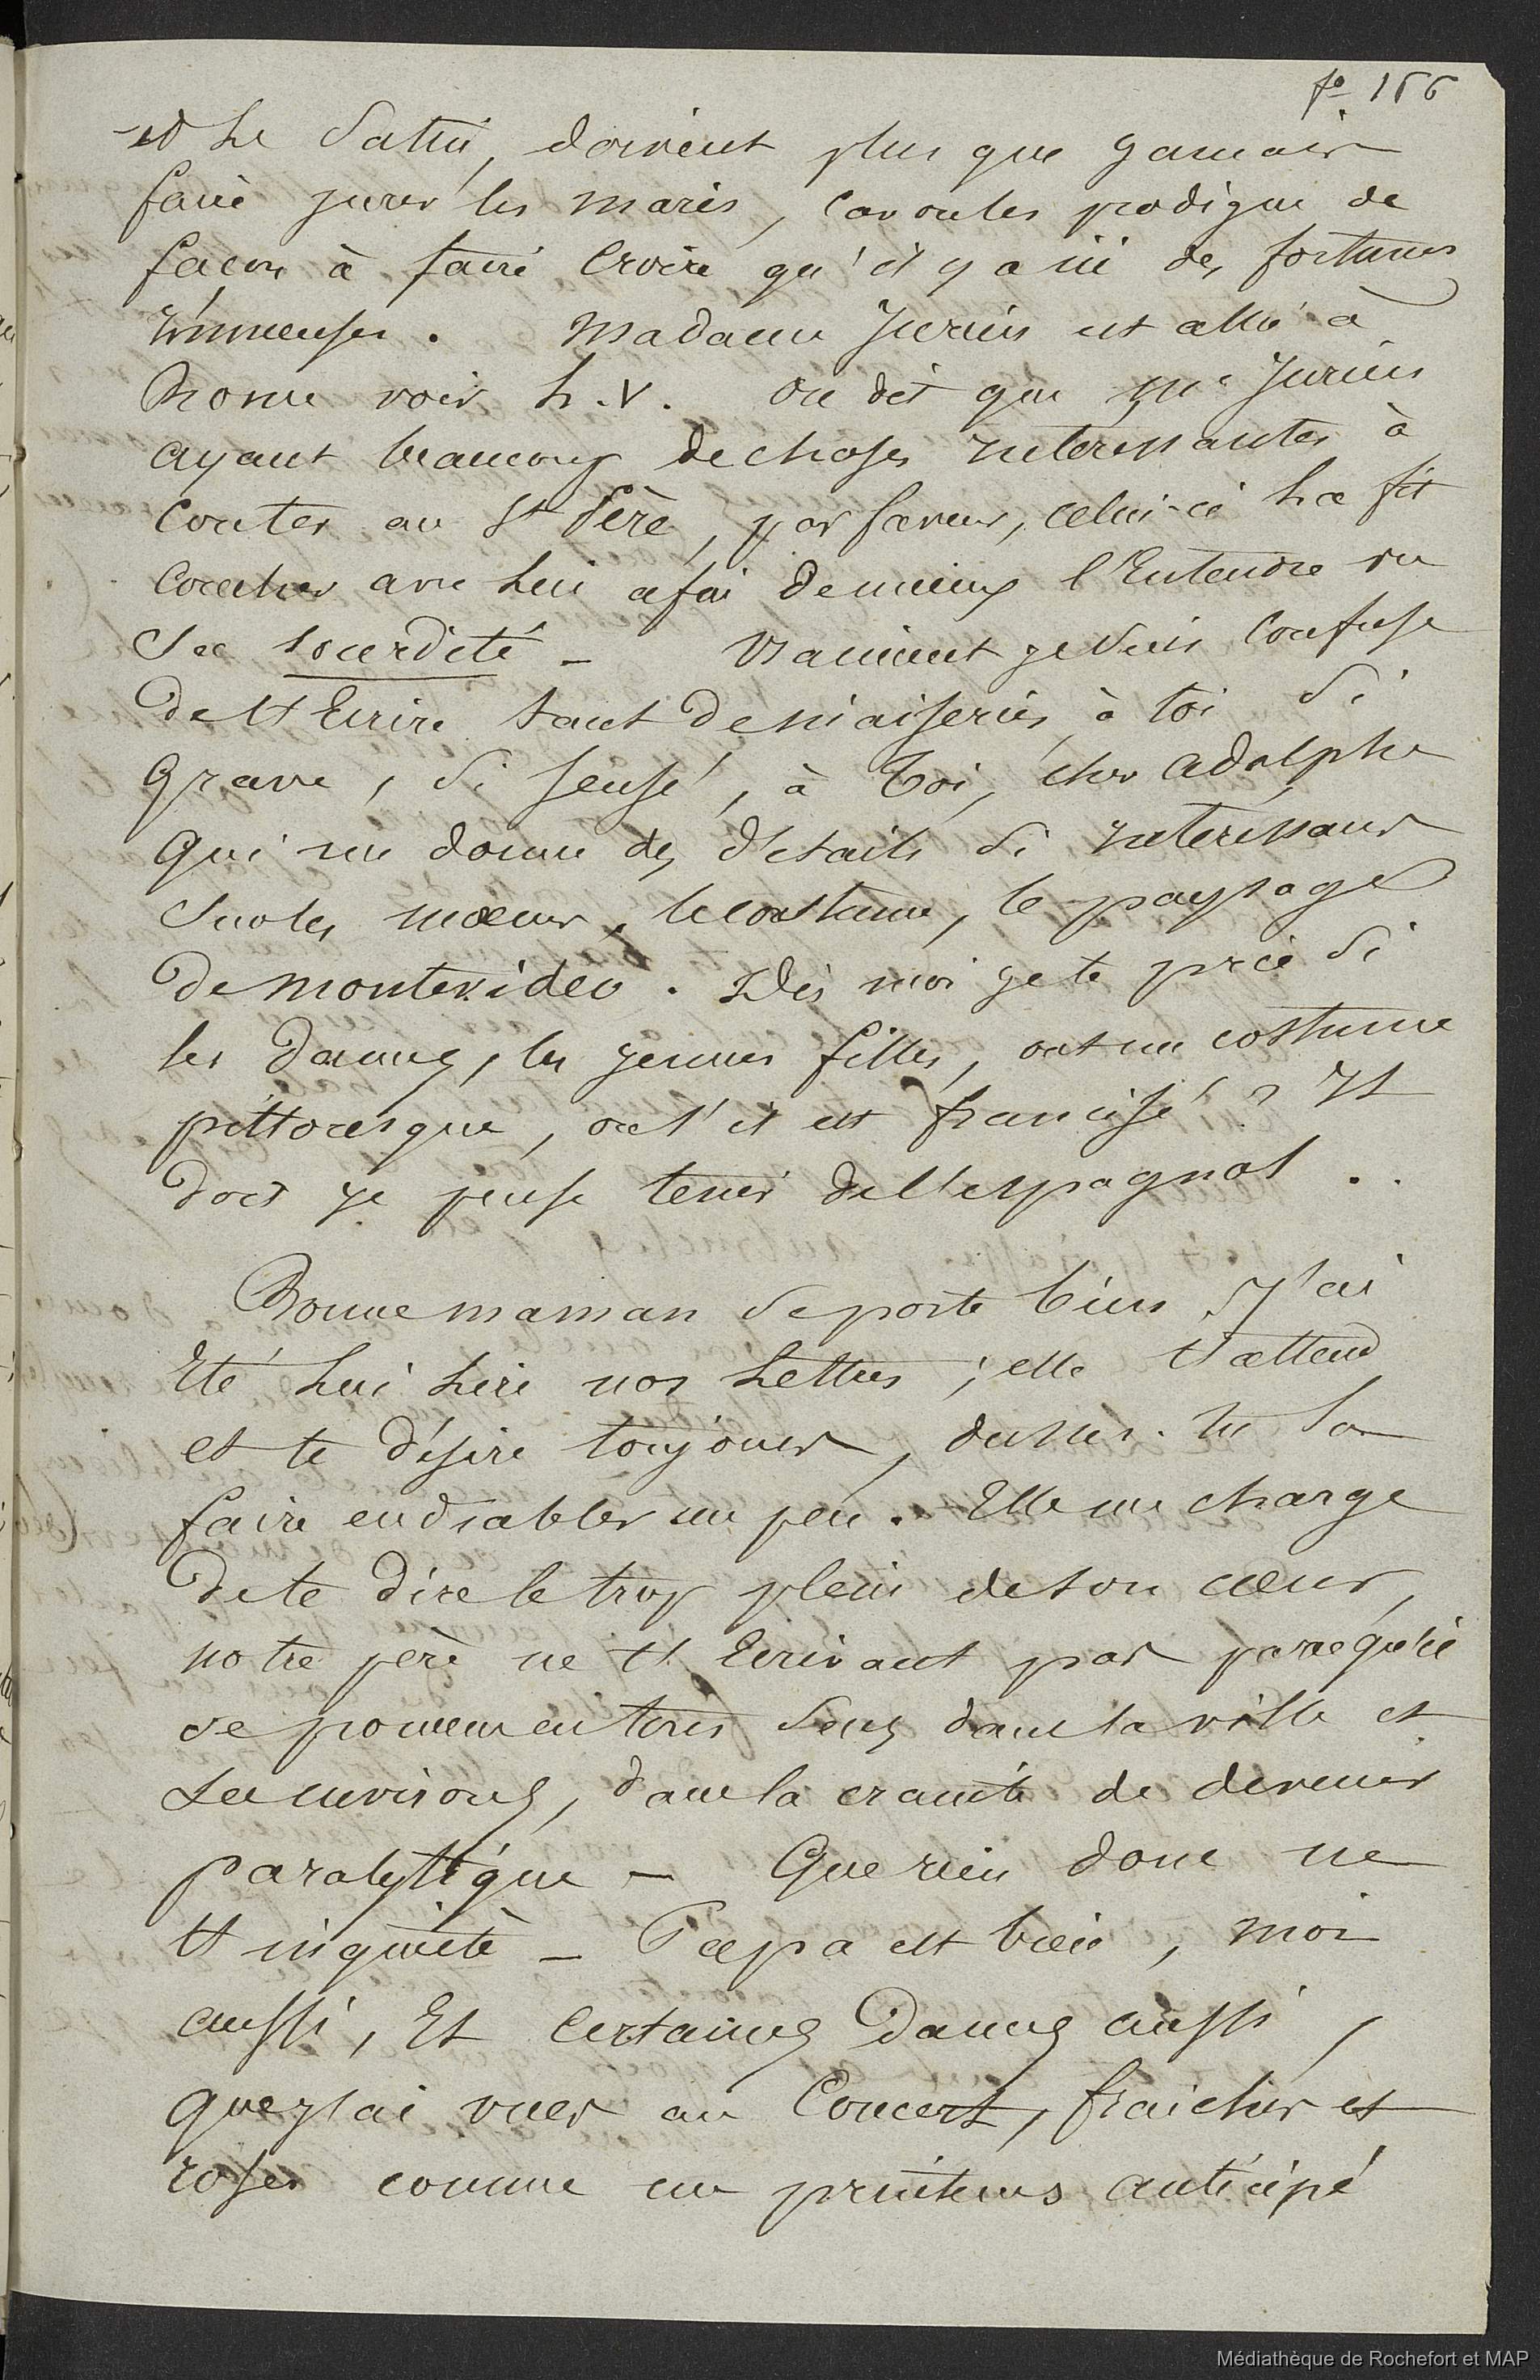 fo. 166
et le Satin, doivent plus que jamais
faire jurer les maris, car on les prodigue de
façon à faire croire qu'il y a ici des fortunes
immenses. Madame Jurien est allée à
Rome voir h. V. On dit que Me Jurien
ayant beaucoup de choses interessantes à
conter au St Père, par faveur, celui-ci la fit
coucher avec lui afin de mieux l'Entendre vu
sa sourdité - Vraiment je suis confuse
de t'Ecrire tant de niaiseries, à toi si
grave, si sensé, à toi, cher Adolphe
qui me donne des détails si interessans
sur les mœurs, le costume, le paysage
de Montevideo. Dis moi je te prie si
les dames, les jeunes filles, ont un costume
pittoresque, ou s'il est francisé? Il
doit je pense tenir de l'espagnol..
Bonne maman se porte bien, J'ai
Eté lui lire nos lettres; elle t'attend
et te désire toujours, dusses-tu la
faire endiabler un peu. Elle me charge
de te dire le trop plein de son cœur,
notre père ne t'Ecrivant pas parcequ'il
se promene en tous sens dans la ville et
ses environs, dans la crainte de devenir
paralytique - Que rien donc ne
t'inquiète - Papa est bien, moi
aussi, Et certaines Dames aussi,
que j'ai vues au Concert, fraiches et
roses comme un printems anticipé
Médiathèque de Rochefort et MAP